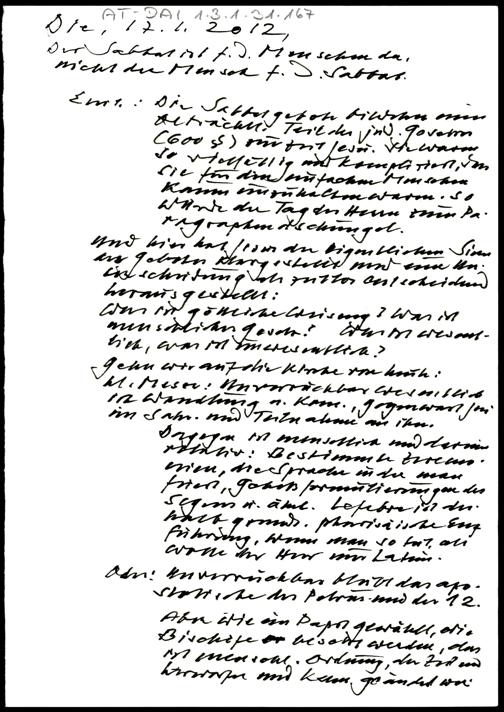 AT-DAI 1.3.1.31.167
Die, 17.1.2012,
Der Sabbat ist f.d. Menschen da,
nicht der Mensch f. d. Sabbat.
Einl.: Die Sabbatgebote bildeten einen
beträchtl. Teil der jüd. Gesetze
(600 §) zur Zeit Jesu. Sie waren
so vielfältig und kompliziert, dass
sie für den einfachen Menschen
kaum einzuhalten waren. So
würde der Tag des Herrn zum Pa-
ragraphendschungel.
Und hier hat Jesus den eigentlichen Sinn
der Gebote klargestellt und eine Un-
terscheidung als zeitlos entscheidend
herausgestellt:
Was ist göttliche Weisung? Was ist
menschliches Gesetz? Was ist wesent-
lich, was ist unwesentlich?
Gehn wir auf die Kirche von heute:
hl. Messe: Unverrückbar wesentlich
ist Wandlung u. Kom., Gegenwart Jesu
im Sakr. und Teilnahme an ihm.
Dagegen ist menschlich und darum
relativ: Bestimmte Zeremo-
nien, die Sprache in der man
feiert, Gebetsformulierungen des
Segens u. ähnl. Lefebre ist des-
halb grunds. pharisäische Eng-
führung, wenn man so tut, als
wolle der Herr nur Latein.
Oder: Unverrückbar bleibt das apo-
stolische des Petrus und der 12.
Aber wie ein Papst gewählt, wie
Bischöfe bestellt werden, das
ist menschl. Ordnung, der Zeit
unterworfen und kann geändert wer-